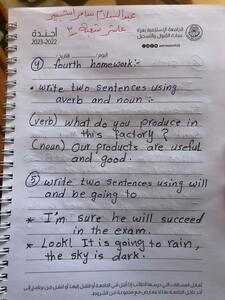 أجندة
2023-2022
الجامعة الإسلامية بغزة
عمادة القبول والتسجيل
عبد السلام سامر
عاشر شعبة ٣
اليوم / التاريخ:
④ fourth homework:-
• write two sentences using
averb and noun:-
(verb) what do you produce in
this factory?
(noun) Our products are useful
and good.
⑤ write two sentences using will
and be going to
* I'm sure he will succeed
in the exam.
* Look! It is going to rain,
the sky is dark.